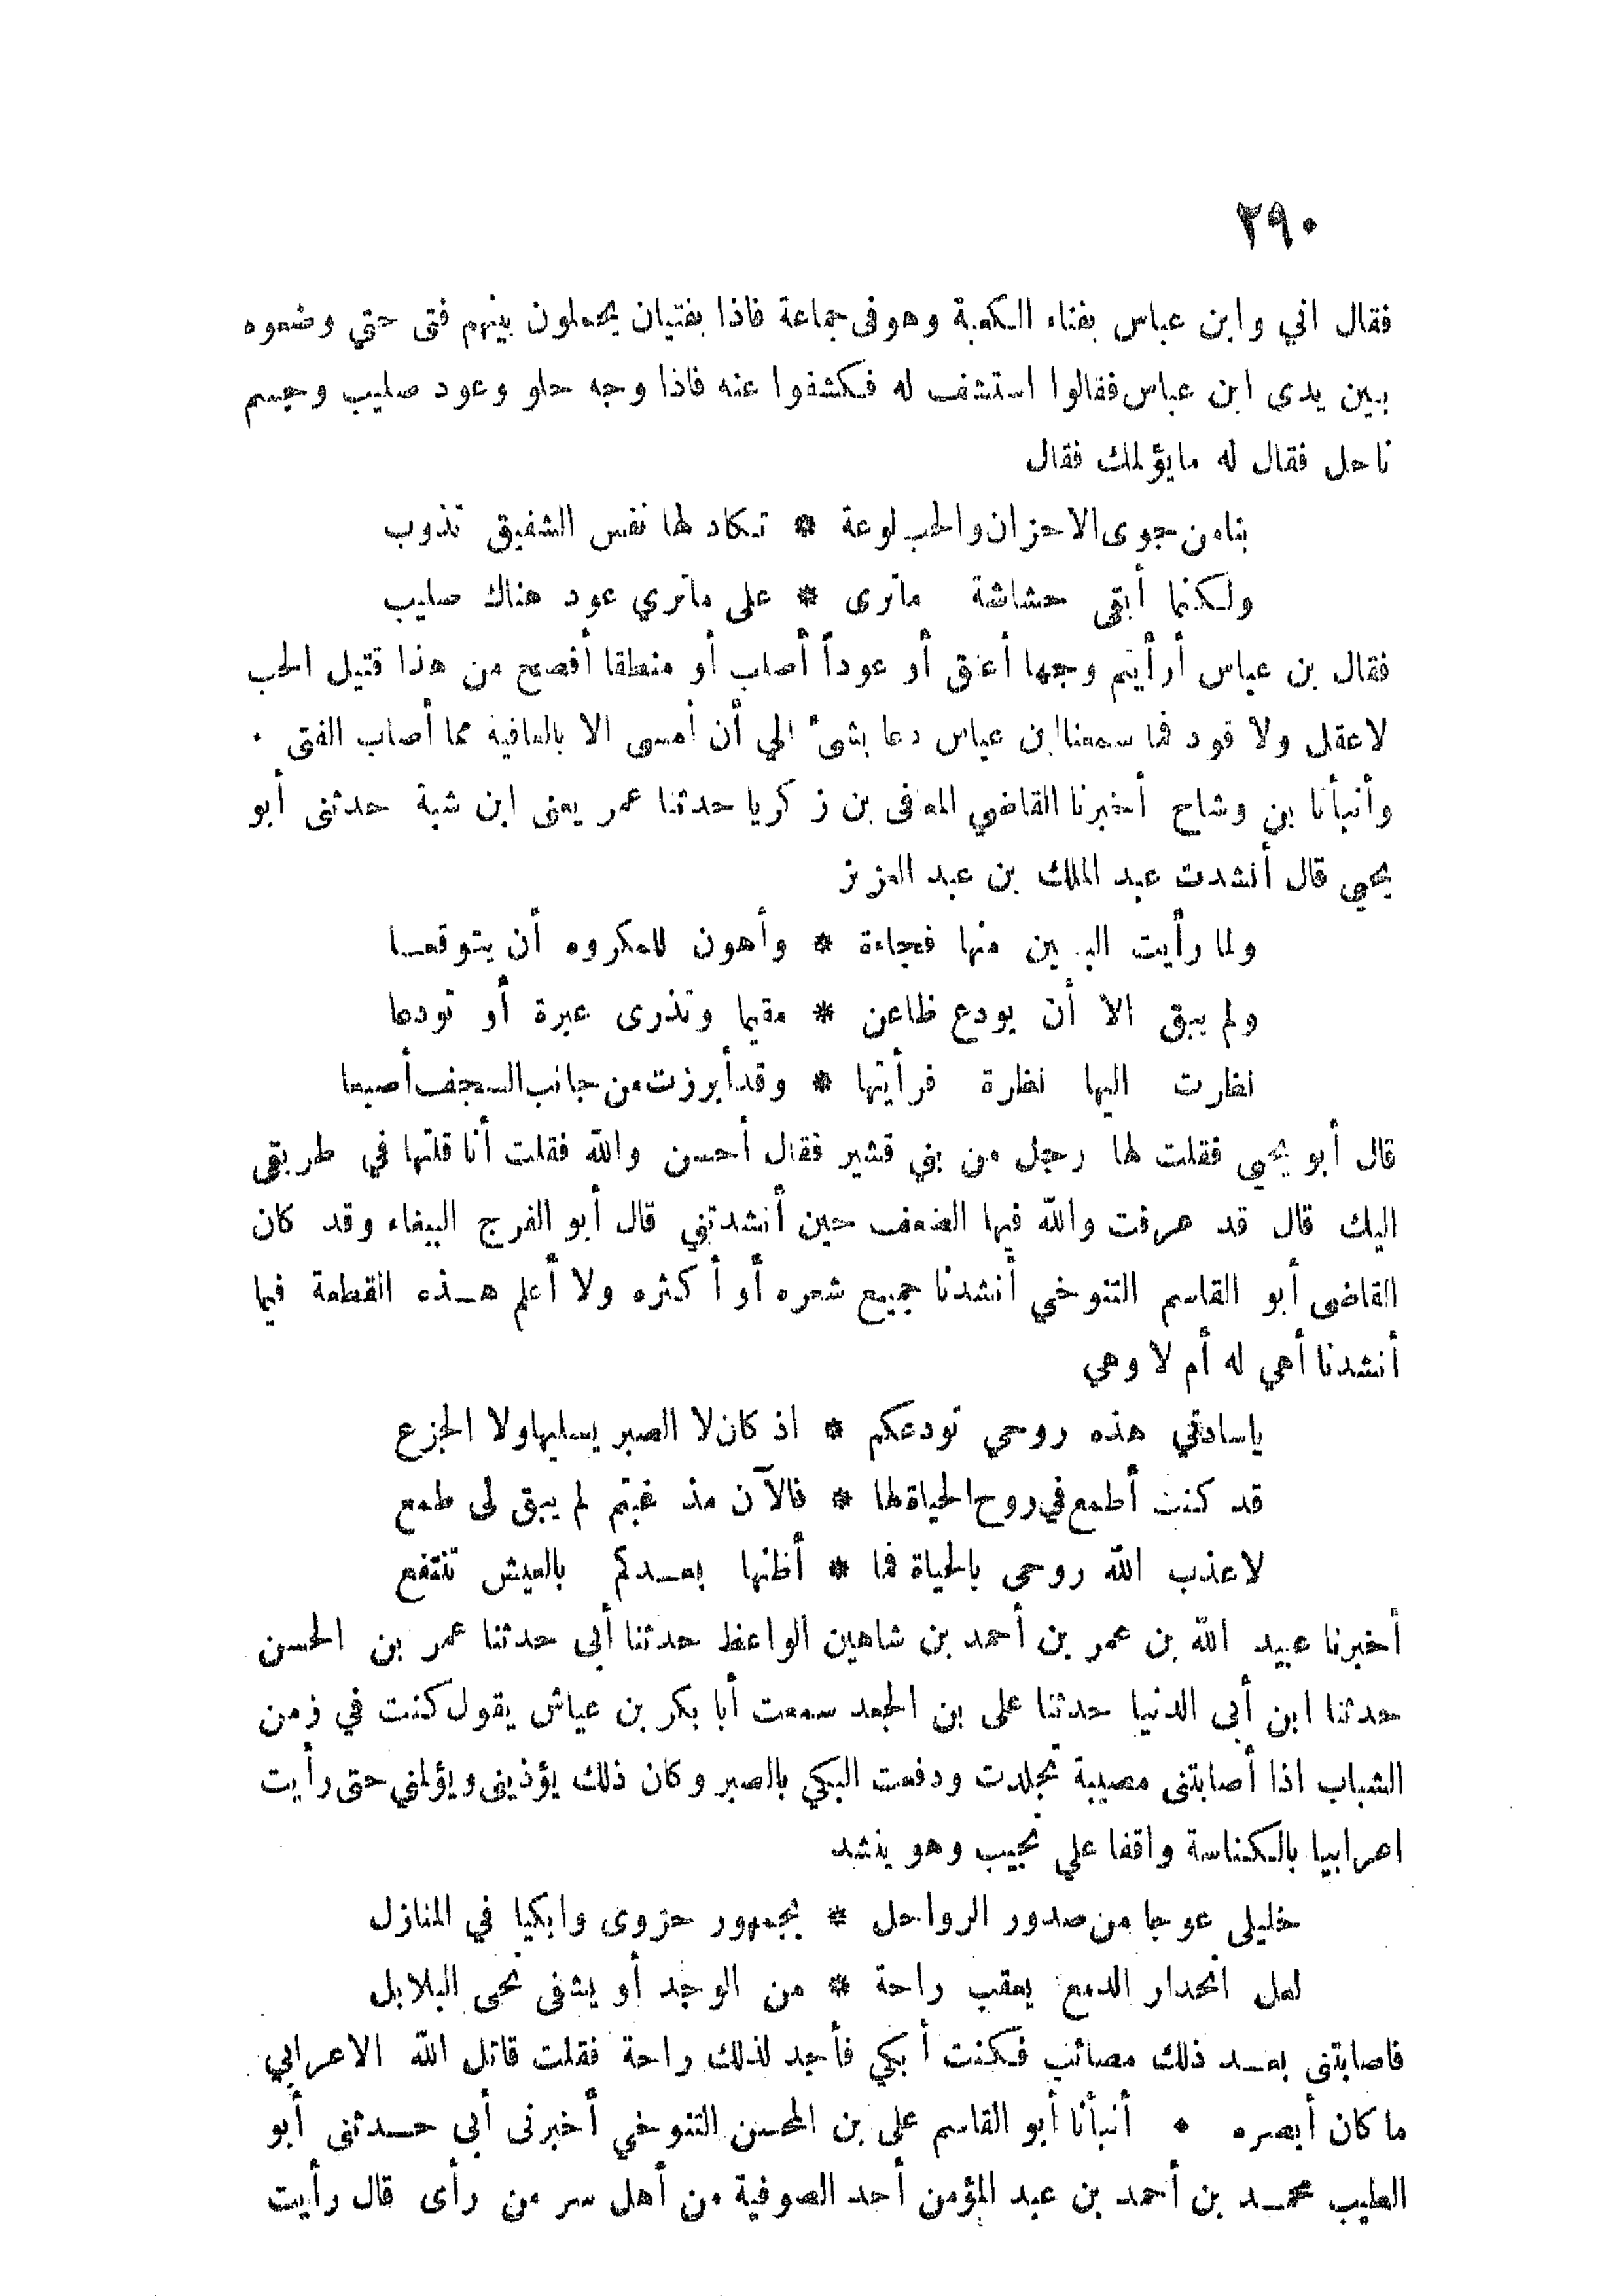 ٢٩٠
فقال اني وابن عباس بفناء الكعبة وهو فى جماعة فاذا بفتيان يحملون بينهم فتى حتي وضعوه
بين يدى ابن عباس فقالوا استشف له فكشفوا عنه فاذا وجه حلو وعود صليب وجسم
ناحل فقال له مايؤلمك فقال
بنا من جوى الاحزان والحب لوعة * تكاد لها نفس الشفيق تذوب
ولكنما أبقى حشاشة ماترى * على ماتري عود هناك صليب
فقال بن عباس أرأيتم وجها أعتق أو عوداً أصلب أو منطقا أفصح من هذا قتيل الحب
لاعقل ولا قود فما سمعنا ابن عباس دعا بشئ الي أن أمسى الا بالعافية مما أصاب الفتى ٠
وأنبأنا بن وشاح أخبرنا القاضي المعافى بن زكريا حدثنا عمر يعنى ابن شبة حدثنى أبو
يحيي قال أنشدت عبد الملك بن عبد العزيز
ولما رأيت البين منها فجاءة * وأهون للمكروه أن يتوقعا
ولم يبق الا أن يودع ظاعن * مقيما وتذرى عبرة أو تودعا
نظرت اليها نظرة فرأيتها * وقد أبرزت من جانب السجف أصبعا
قال أبو يحيى فقلت لها رجل من بني قشير فقال أحسن والله فقلت أنا قلتها في طريقى
اليك قال قد عرفت والله فيها الضعف حين أنشدتني قال أبو الفرج الببغاء وقد كان
القاضى أبو القاسم التنوخي أنشدنا جميع شعره أو أكثره ولا أعلم هذه القطعة فيما
أنشدنا أهي له أم لا وهي
ياسادتي هذه روحي تودعكم * اذ كان لا الصبر يسليها ولا الجزع
قد كنت أطمع في روح الحياة لها * فالآن مذ غبتم لم يبق لى طمع
لاعذب الله روحى بالحياة فما * أظنها بعدكم بالعيش تنتفع
أخبرنا عبيد الله بن عمر بن أحمد بن شاهين الواعظ حدثنا أبى حدثنا عمر بن الحسن
حدثنا ابن أبى الدنيا حدثنا على بن الجعد سمعت أبا بكر بن عياش يقول كنت في زمن
الشباب اذا أصابتنى مصيبة تجلدت ودفعت البكي بالصبر وكان ذلك يؤذينى ويؤلمني حتى رأيت
اعرابيا بالكناسة واقفا علي نجيب وهو ينشد
خليلى عوجا من صدور الرواحل * بجمهور حزوى وابكيا في المنازل
لعل انحدار الدمع يعقب راحة * من الوجد أو يشفى نجى البلابل
فاصابتنى بعد ذلك مصائب فكنت أبكي فأجد لذلك راحة فقلت قاتل الله الاعرابي
ما كان أبصره ٠ أنبأنا أبو القاسم على بن المحسن التنوخي أخبرنى أبي حدثنى أبو
الطيب محمد بن أحمد بن عبد المؤمن أحد الصوفية من أهل سر من رأى قال رأيت